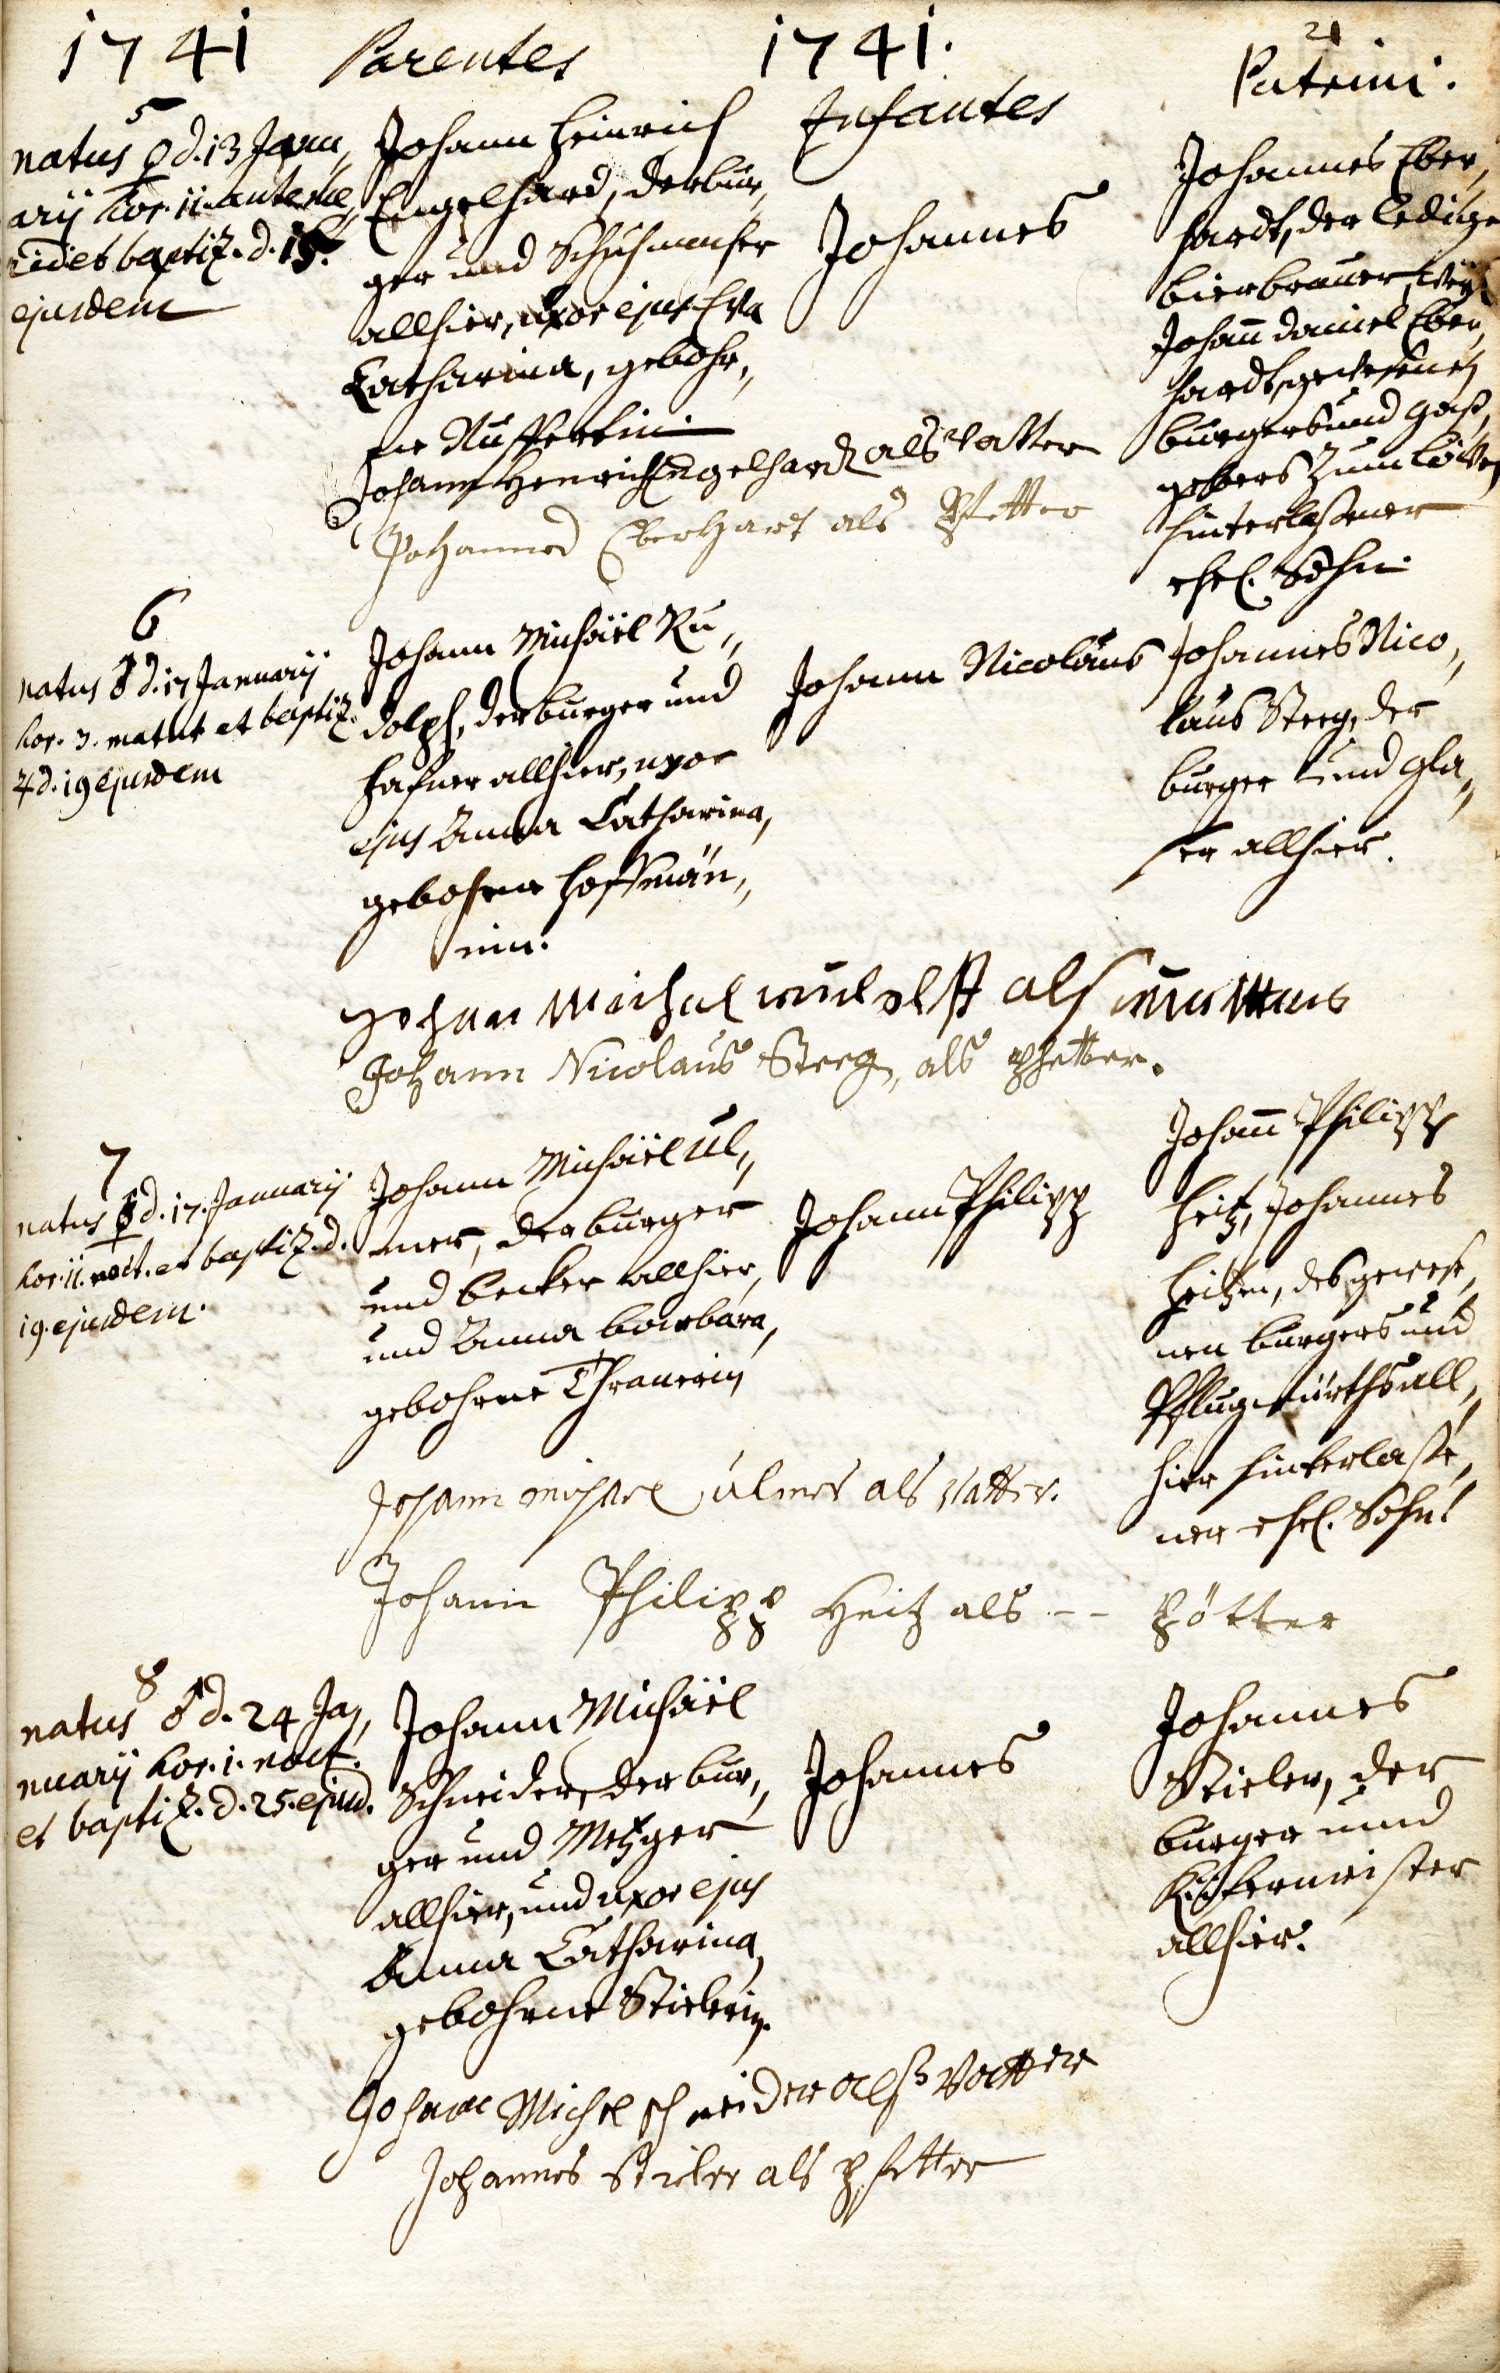 21
1741 Parentes 1741. Patrini.
Infantes
5
natus ♀ d. 13 Janu,
arij hor. 11. ante me,
ridiet baptiz. d. 15.
ejusdem
Johann Heinrich
Engelhard, der bur,
ger und Schuhmacher
allhier, uxor ejus Eva
Catharina, gebohr,
ne Nufferin.
Johannes
Johannes Eber,
hardt, der ledige
bierbrauer, weyl.
Johañ Daniel Eber,
hardt, gewesenen
burgers und Gast,
gebers zum Löwen
hinterlaßener
ehel. Sohn.
Johann Henrich Engelhard als Vatter
Johannes Eberhart als Pfetter
6
natus ♂ d. 17 Januarij
hor. 3. matut et baptiz.
♃ d. 19 ejusdem
Johann Michäel Ru,,
dolph, der burger und
Hafner allhier, uxor
ejus Anna Catharina,
gebohrne Hoffmän,,
nin.
Johann Nicolaus
Johannes Nico,,
laus Steeg, der
burger und Gla,,
ser allhier.
Johann Michael rudolff als
Johann Nicolaus Steeg, als pfetter.
7
natus ♂ d. 17. Januarij
hor. 11. noct. et baptiz. d.
19. ejusdem.
Johann Michäel Ul,,
mer, der burger
und becker allhier,
und Anna barbara,
gebohrne Thranerin
Johann Philipp
Johañ Philipp
Heitz, Johannes
Heitzen, des gewese,
nen burgers und
Pflugwürths all,
hier hinterlaße,
ner ehel. Sohn.
Johann michael ulmer als Vatter.
Johann Philipp Heitz als -- Pötter
8
natus ♂ d. 24 Ja,
nuarij hor. 1. noct.
et baptiz. d. 25. ejusd.
Johann Michäel
Schneider, der bur,,
ger und Metzger
allhier, und uxor ejus
Anna Catharina,
gebohrne Stielerin.
Johannes
Johannes
Stieler, der
burger und
Küfermeister
allhier.
Johann Michel schneider alß Vatter
Johannes Stieler als pfetter